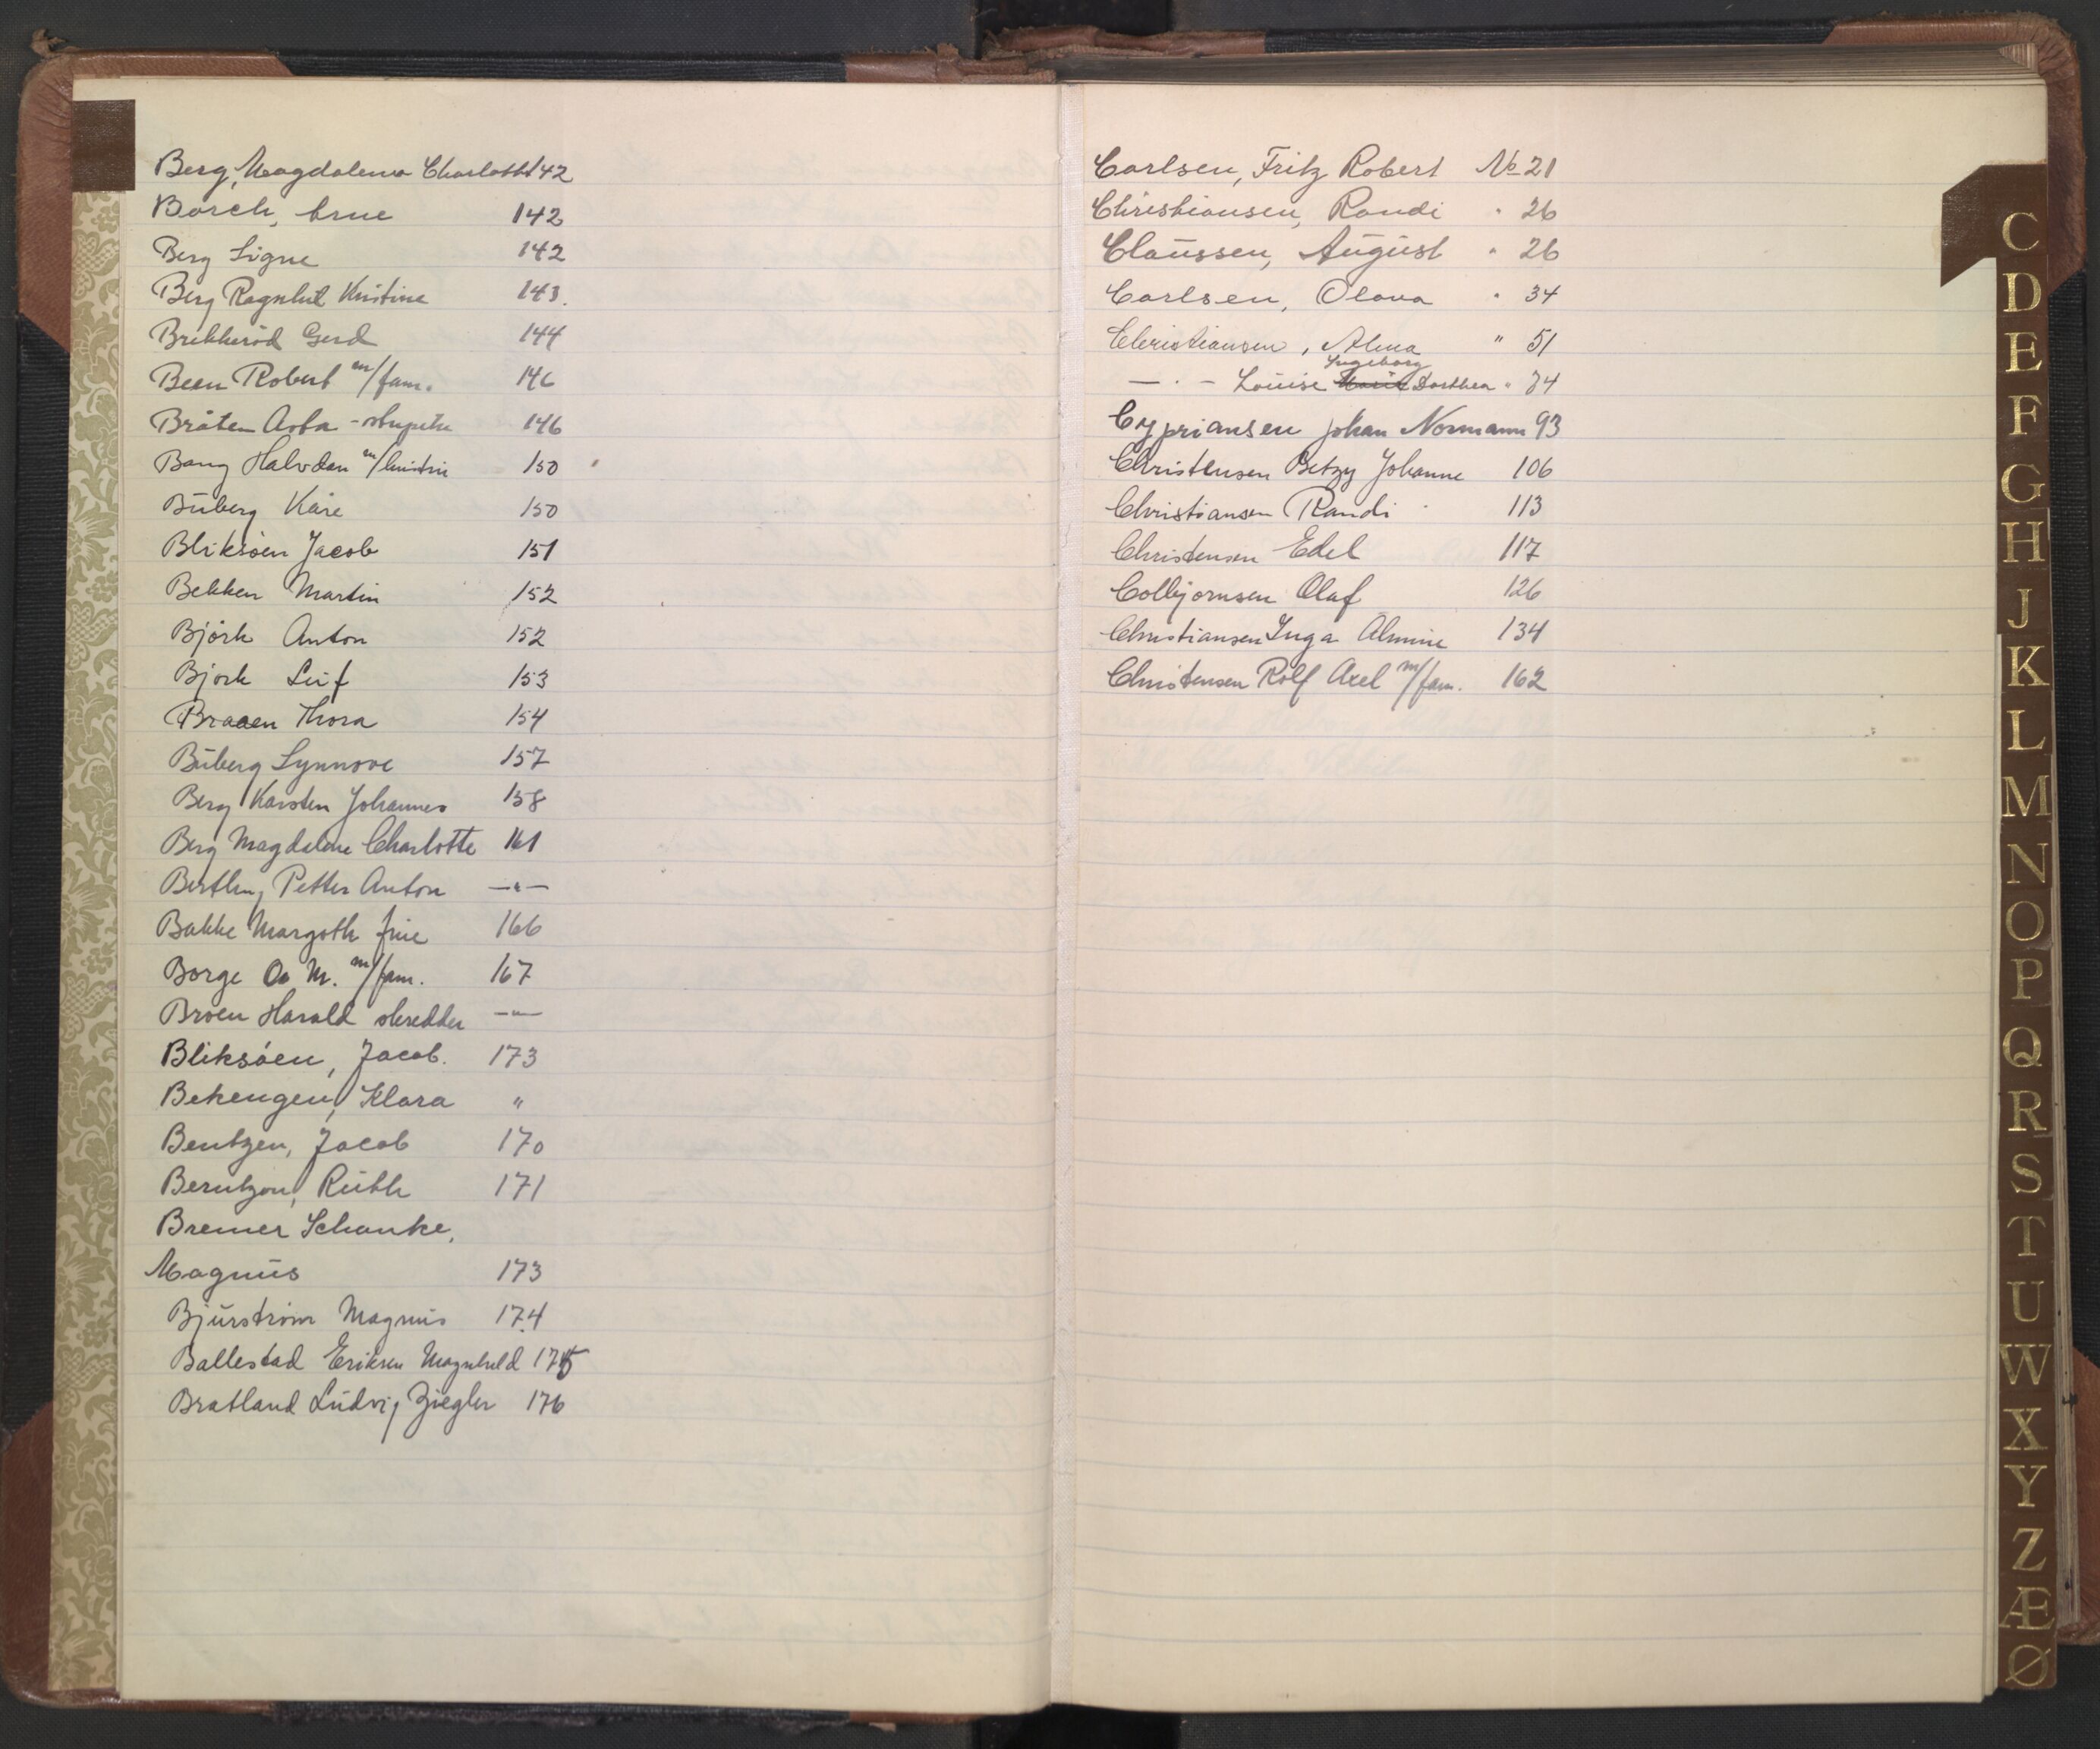 Berg, Magdalena Charlotte 142
Borch, Arne 142
Berg Signe 142
Berg Ragnhil Kristine 143.
Brekkerød Gerd 144
Been Robert m/fam. 146
Bråten Asta 146
Bang Halvdan m/hustru 150
Büberg Kåre 150
Bliksöen Jacob 151
Bekken Martin 152
Björk Anton 152
Björk Leif 153
Braaen Thora 154
Büberg Synnøve 157
Berg Karsten Johannes 158
Berg Magdalene Charlotte 161
Berthling Petter Anton —"—
Bakke Margoth frue 166
Borge O. M. m/fam. 167
Broen Harald skredder —"—
Bliksöen, Jacob. 173
Bekengen, Klara "
Bentzen, Jacob 170
Berntzon, Rüth 171
Bremer Schanke,
Magnüs 173
Bjürström Magnus 174
Ballestad Eriksen Magnhild 175
Bratland Ludvig Ziegler 176
Carlsen, Fritz Robert No 21
Christiansen, Randi " 26
Claüssen, Aügüst " 26
Carlsen, Olava " 34
Christiansen, Alma " 51
Ingeborg
— " — Loüise Marie Dorthea " 74
Cypriansen Johan Normann 93
Christensen Betzy Johanne 106
Christiansen Randi 113
Christensen Edel 117
Colbjørnsen Olaf 126
Christiansen Inga Almine 134
Christensen Rolf Axel m/fam. 162
C
D
E
F
G
H
J
K
L
M
N
O
P
Q
R
S
T
U
W
X
Y
Z
Æ
Ø